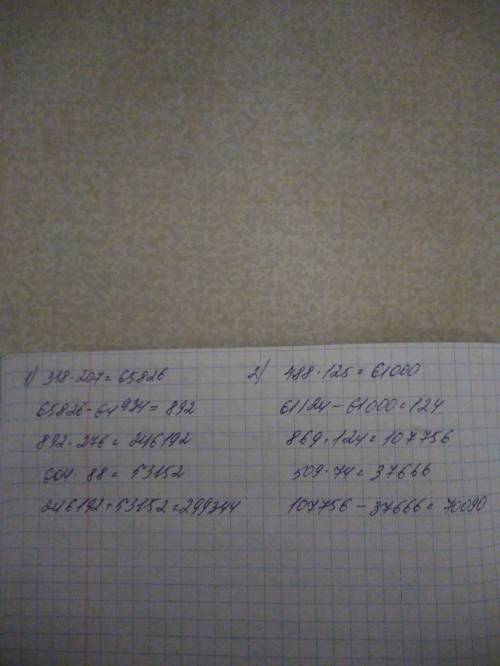 1) 318·207=65826
65826-64934=892
892·276=246192
604·88=53152
246192+53152=299344
2) 488·125=61000
61124-61000=124
869·124=107756
509·74=37666
107756-37666=70090